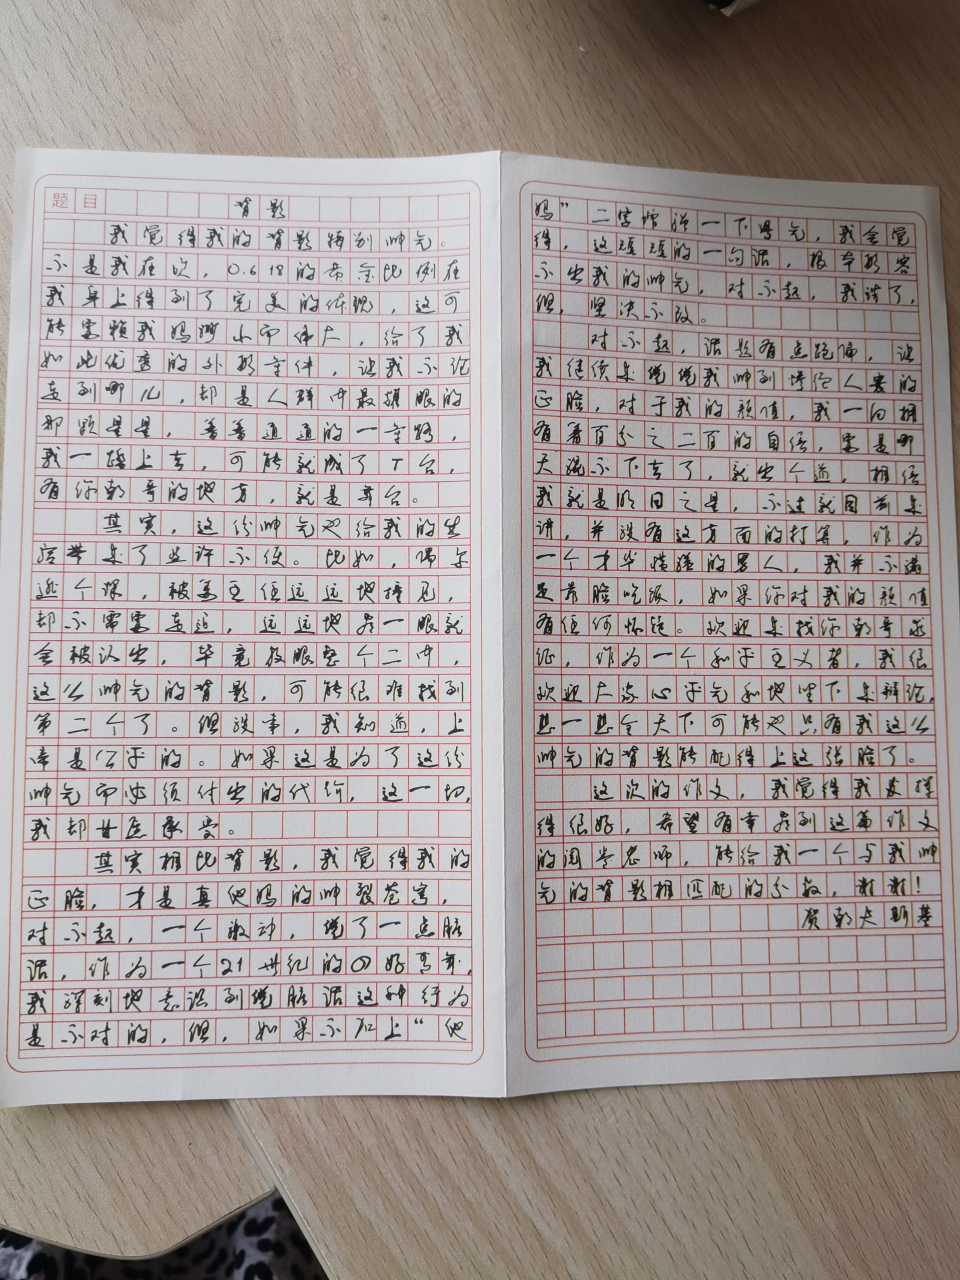 题目 背影
我觉得我的背影特别帅气。
不是我在吹，0.618的黄金比例在
我身上得到了完美的体现，这可
能要赖我妈咪小市伟大，给了我
如此优秀的外形条件，让我不论
走到哪儿，却是人群中最耀眼的
那颗星星，普普通通的一条路，
我一踏上去，可能就成了T台，
有你朝哥的地方，就是舞台。
其实，这份帅气也给我的生
活带来了些许不便。比如，偶尔
逃个课，被姜主任远远地撞见，
却不需要走近，远远地看一眼就
会被认出，毕竟放眼整个二中，
这么帅气的背影，可能很难找到
第二个了。但没事，我知道，上
帝是公平的。如果这是为了这份
帅气而必须付出的代价，这一切，
我却甘愿承受。
其实相比背影，我觉得我的
正脸，才是真他妈的帅裂苍穹，
对不起，一个激动，说了一点脏
话，作为一个21世纪的四好青年，
我深刻地意识到说脏话这种行为
是不对的，但，如果不加上“他
妈”二字增强一下语气，我会觉
得，这短短的一句话，根本形容
不出我的帅气，对不起，我错了，
但，坚决不改。
对不起，话题有点跑偏，让
我继续来说说我帅到掉给人类的
正脸，对于我的颜值，我一向拥
有着百分之二百的自信，要是哪
天混不下去了，就出个道，相信
我就是明日之星，不过就目前来
讲，并没有这方面的打算，作为
一个才华横溢的男人，我并不满
足靠脸吃饭，如果你对我的颜值
有任何怀疑。欢迎来找你朝哥求
证，作为一个和平主义者，我很
欢迎大家心平气和地坐下来辩论，
想一想全天下可能也只有我这么
帅气的背影能配得上这张脸了。
这次的作文，我觉得我发挥
得很好，希望有幸看到这篇作文
的阅卷老师，能给我一个与我帅
气的背影相匹配的分数，谢谢！
贺朝夫斯基